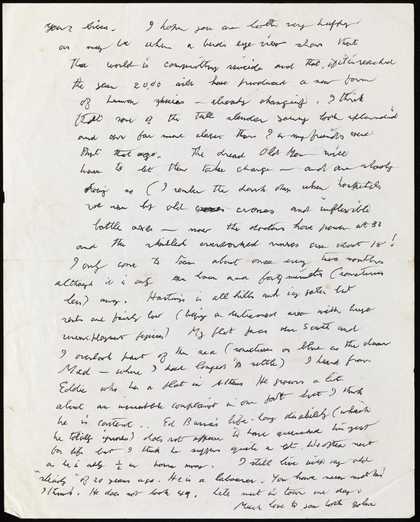 your lives. I hope you are both very happy
as may be when a birds eye view shows that
the world is committing suicide and that, if it is reached
the year 2000 will have produced a new form
of human species – already changing. I think
that some of the tall slender young look splendid
and are far more clever than I or my friends were
that age. The dread Old Men will
have to let them take charge – and are slowly
doing so (I remember the dark days when hospitals
were run by old crones and inflexible
battle axes – now the doctors have power at 33
and the skilled overworked nurses are about 18!
I only come to Town about once every two months
although it is only an hour and forty minutes (sometimes
less) away. Hastings is all hills and is, but
rents are fairly low (being a retirement area with huge
unemployment figures) My flat faces due South and
I overlook part of the sea (sometimes as blue as the dear
Med – where I had longed to settle) I heard from
Eddie who has a flat in Athens. He groans a lot
about an incurable complaint in one foot but I think
he is content. Ed Burra's life-long disability (which
he totally ignored) does not appear to have quenched his zest
for life but I think he suffers quite a bit. We often meet
as he is only ½ an hour away. I still live with my old
"steady" of 20 years ago. He is a labourer. You have never met him
I think. He does not look 49. Let's meet in town one day.
Much love to you both John